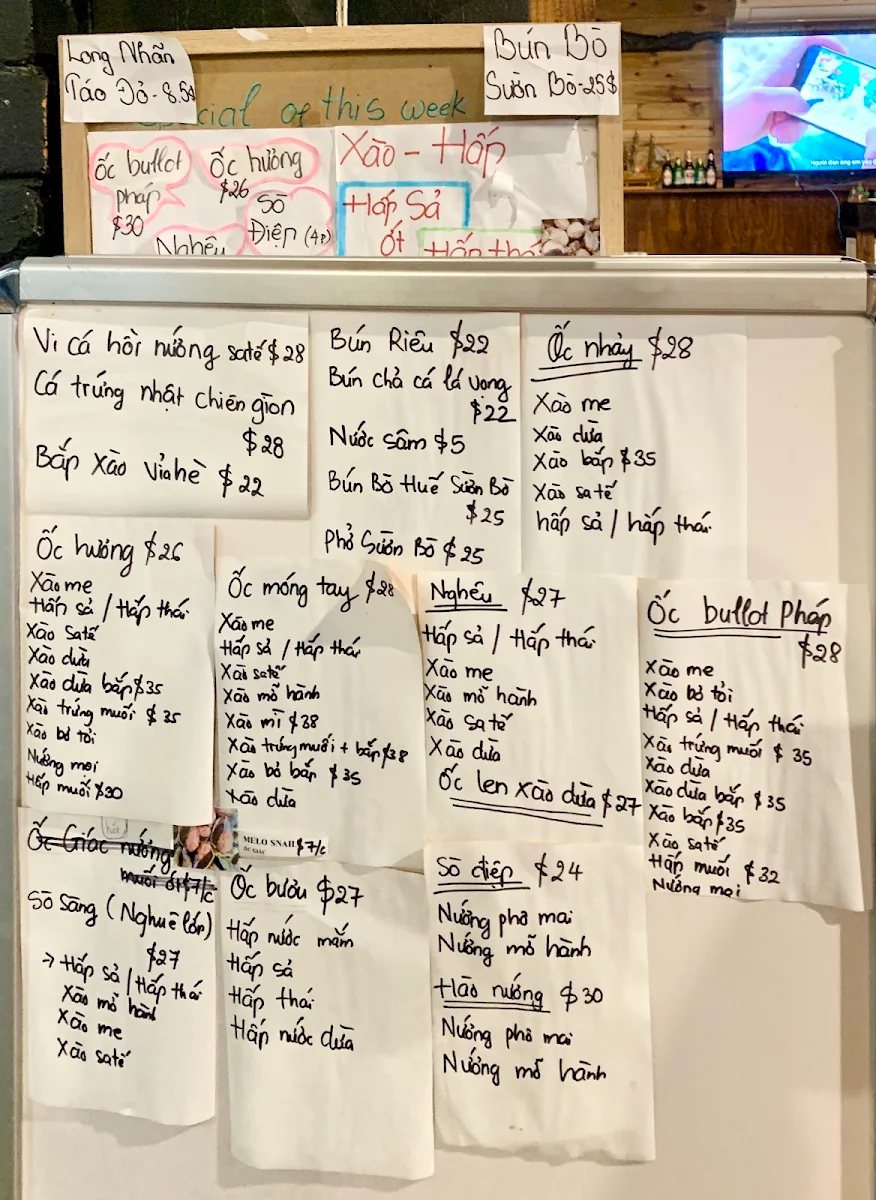 Long Nhãn
Táo Đỏ - 8.5$
Bún Bò
Sườn Bò - 25$
Special of this week
Ốc bullot
pháp
$30
Ốc hương
$26
Sò
Điệp (4P)
Nghêu
Xào - Hấp
Hấp Sả
Ớt
Hấp thái
Vi cá hồi nướng satế $28
Cá trứng nhật chiên giòn
$28
Bắp xào vỉa hè $22
Bún Riêu $22
Bún chả cá lá vọng
$22
Nước sâm $5
Bún Bò Huế Sườn Bò
$25
Phở Sườn Bò $25
Ốc nhảy $28
Xào me
Xào dừa
Xào bắp $35
Xào sa tế
hấp sả / hấp thái
Ốc hương $26
Xào me
Hấp sả / Hấp thái
Xào satế
Xào dừa
Xào dừa bắp $35
Xào trứng muối $35
Xào bơ tỏi
Nướng mọi
Hấp muối $30
Ốc móng tay $28
Xào me
Hấp sả / Hấp thái
Xào satế
Xào mỡ hành
Xào mì $38
Xào trứng muối + bắp $38
Xào bơ bắp $35
Xào dừa
Nghêu $27
Hấp sả / Hấp thái
Xào me
Xào mỡ hành
Xào sa tế
Xào dừa
Ốc len xào dừa $27
Ốc bullot Pháp
$28
Xào me
Xào bơ tỏi
Hấp sả / Hấp thái
Xào trứng muối $35
Xào dừa
Xào dừa bắp $35
Xào bắp $35
Xào satế
Hấp muối $32
Nướng mọi
hết
Ốc Giác nướng
muối ớt $7/c
MELO SNAIL $7/c
ỐC GIÁC
Sò Sãng (Nghuê lớn)
$27
→ Hấp sả / Hấp thái
Xào mỡ hành
Xào me
Xào satế
Ốc bươu $27
Hấp nước mắm
Hấp sả
Hấp thái
Hấp nước dừa
Sò điệp $24
Nướng phô mai
Nướng mỡ hành
Hào nướng $30
Nướng phô mai
Nướng mỡ hành